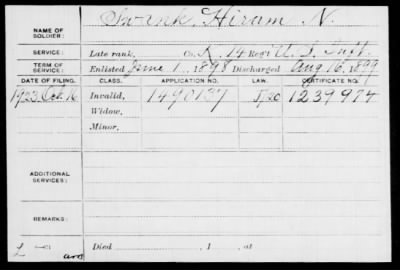 Swank, Hiram N.
NAME OF SOLDIER:
SERVICE: Late rank, Co. K, 14 Reg't U. S. Inft.
TERM OF SERVICE: Enlisted June 1, 1898 Discharged Aug 16, 1899
DATE OF FILING. CLASS. APPLICATION NO. LAW. CERTIFICATE NO.
1923 Oct. 16 Invalid, 1490137 5/20 1239974
Widow,
Minor,
ADDITIONAL SERVICES:
REMARKS:
Died , 1 , at